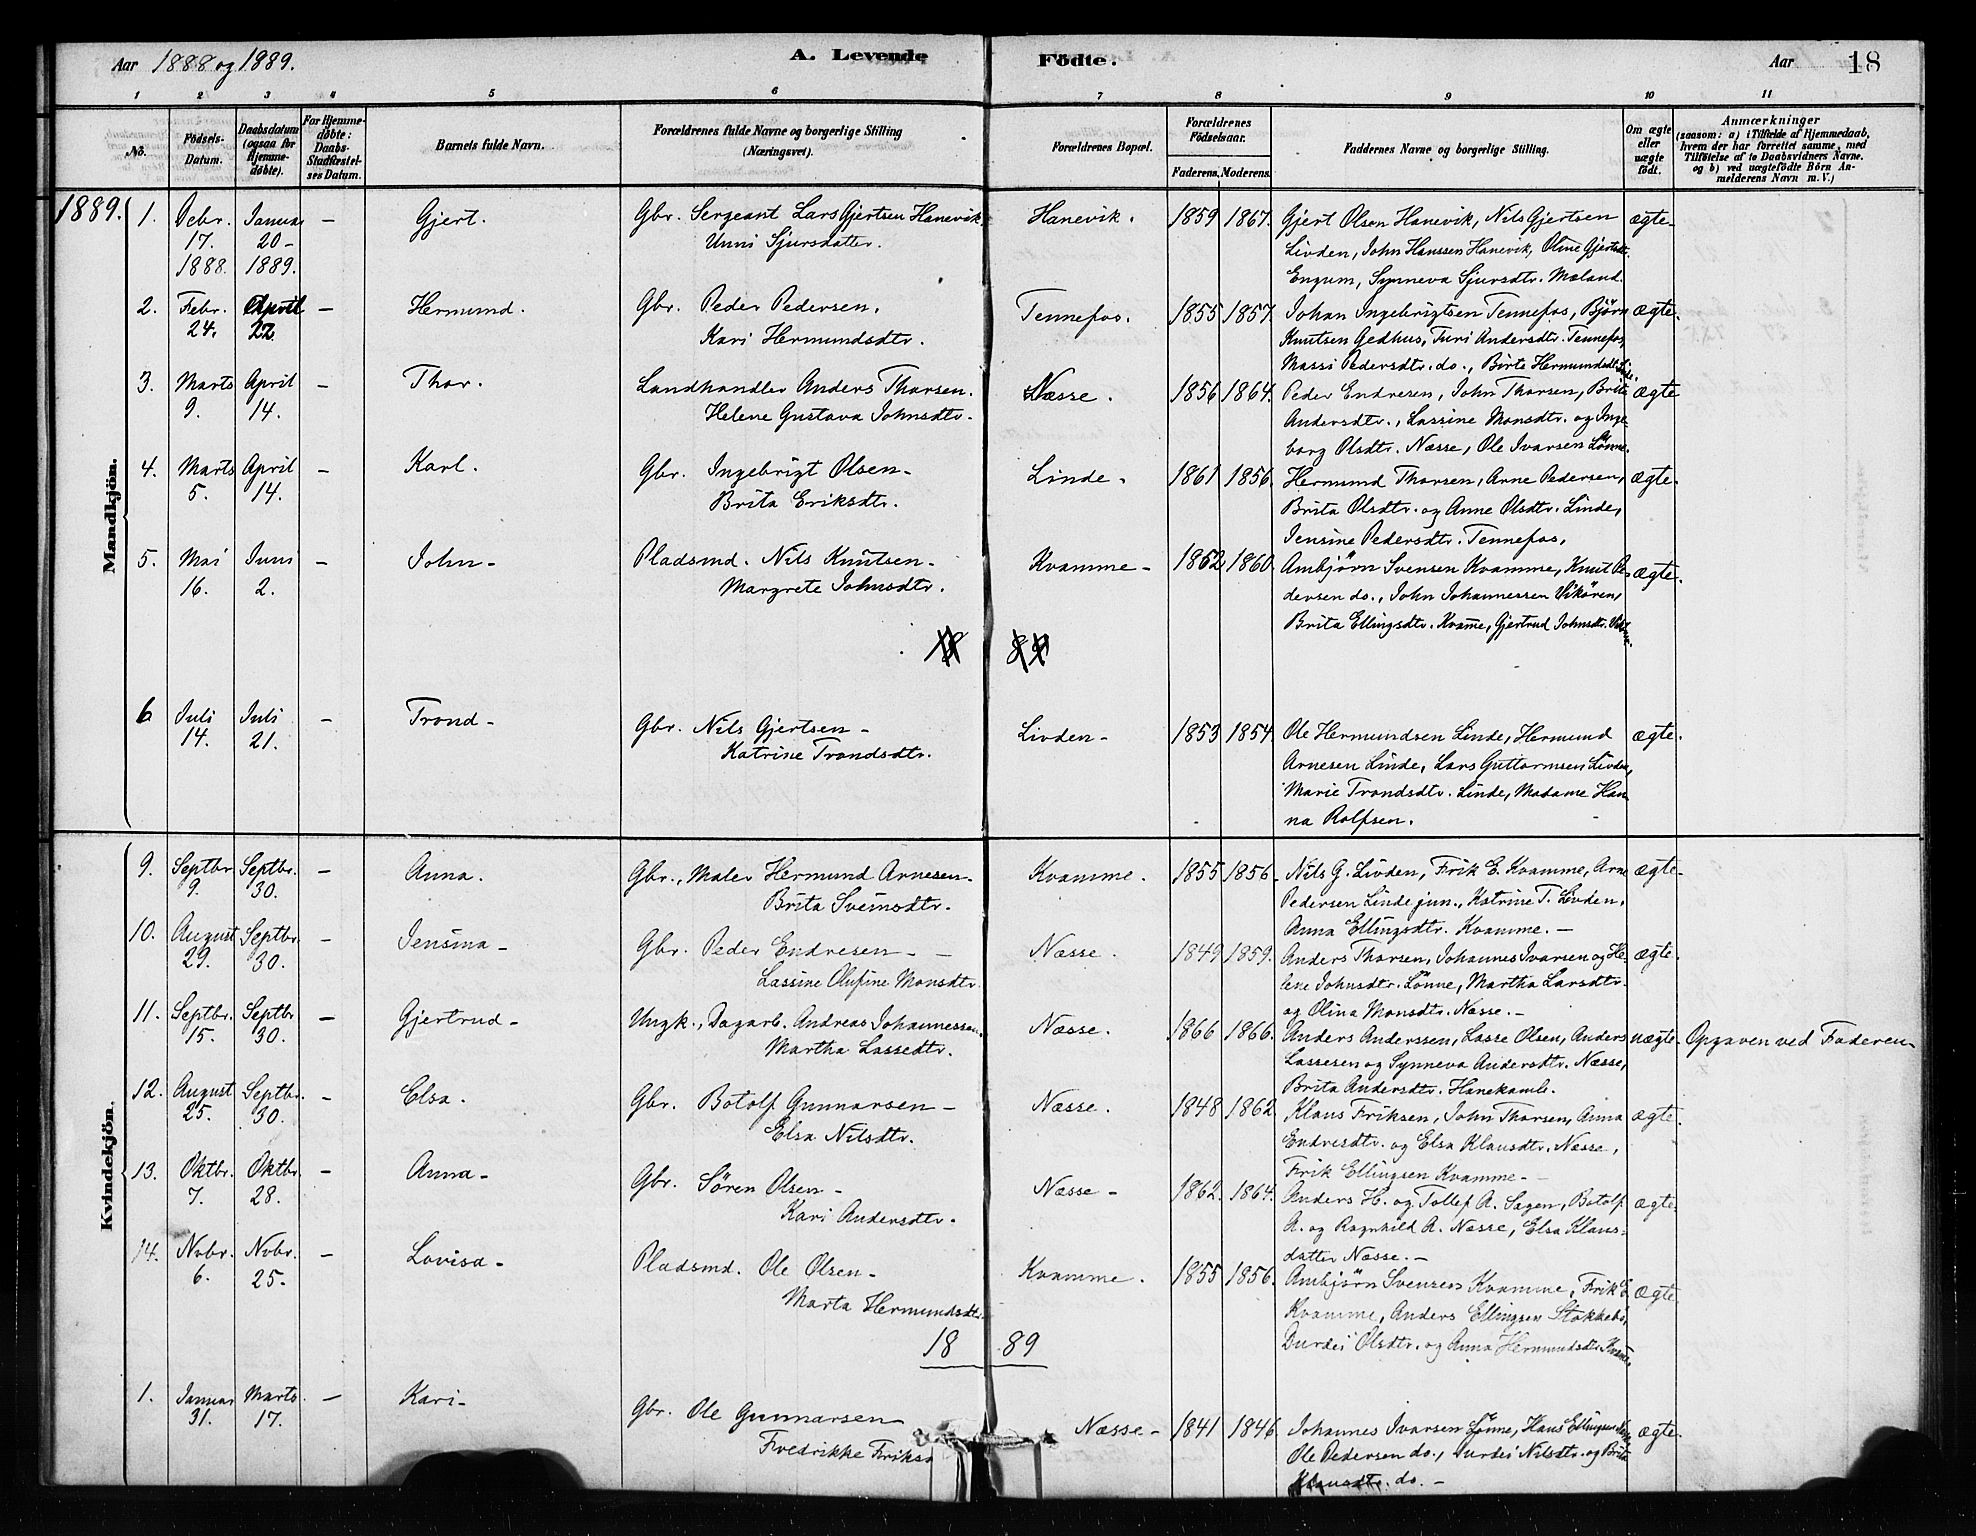 Aar 1888 og 1889. A. Levende Födte. Aar 18
1 2 3 4 5 6 7 8 9 10 11
No.
Födsels-Datum.
Daabsdatum (ogsaa for Hjemme-döbte).
For Hjemme-döbte: Daabs-Stadfæstel-ses Datum.
Barnets fulde Navn.
Forældrenes fulde Navne og borgerlige Stilling (Næringsvei).
Forældrenes Bopæl.
Forældrenes Födselsaar.
Faderens. Moderens.
Faddernes Navne og borgerlige Stilling.
Om ægte eller uægte födt.
Anmærkninger
(saasom: a) i Tilfælde af Hjemmedaab, hvem der har forrettet samme, med Tilföielse af to Daabsvidners Navne. og b) ved uægtefödte Börn An-melderens Navn m. V.)
Mandkjön.
1889. 1. Debr. Januar – Gjert. Gbr. Sergeant Lars Gjertsen Hanevik Hanevik. 1859 1867. Gjert Olsen Hanevik, Nils Gjertsen ægte-
17. 20- Unni Sjursdatter. Livden, John Hanssen Hanevik, Oline Gjertsdtr.
1888. 1889. Synneva Sjursdtr. Maland.
2. Febr. April – Hermund. Gbr. Peder Pedersen. Tennefos. 1855 1857. Johan Ingebrigtsen Tennefos, Björn ægte.
24. 22. Kari Hermundsdtr. Knutsen Gedhus, Turi Andersdtr. Tennefos,
Massi Pedersdtr. do., Birte Hermundsdtr.
3. Marts April – Thor. Landhandler Anders Thorsen. Næsse. 1856 1864. Peder Endresen, John Thorsen, Brita ægte
9. 14. Helene Gustava Johnsdtr. Andersdtr., Lassine Monsdtr. og Inge-
borg Olsdtr. Næsse, Ole Ivarsen Lönne.
4. Marts April – Karl. Gbr. Ingebrigt Olsen- Linde. 1861 1856. Hermund Thorsen, Arne Pedersen, ægte.
5. 14. Brita Eriksdtr. Brita Olsdtr. og Anne Olsdtr. Linde,
Jensine Pedersdtr. Tennefos,
5. Mai Juni – John- Pladsmd. Nils Knutsen- Kvamme- 1862 1860. Ambjörn Svensen Kvamme, Knut Pe- ægte.
16. 2. Margrete Johnsdtr. dersen do., John Johannessen Vikören,
Brita Ellingsdtr. Kvam̄e, Gjertrud Johnsdtr.
6 Juli Juli – Trond- Gbr. Nils Gjertsen- Livden- 1853 1854. Ole Hermundsen Linde, Hermund ægte.
14. 21. Katrine Trondsdtr. Arnesen Linde, Lars Guttormsen Livden,
Marie Trondsdtr. Linde, Madame Han-
na Rolfsen.
Kvindekjön.
9. Septbr Septbr. – Anna. Gbr., Maler Hermund Arnesen- Kvamme. 1855 1856. Nils G. Livden, Frik E. Kvamme, Arne ægte-
9. 30. Brita Sveinsdtr. Pedersen Linde jun., Katrine T. Livden,
Anna Ellingsdtr. Kvamme.-
10. August Septbr. – Jensina- Gbr. Peder Endresen- Næsse. 1849 1859. Anders Thorsen, Johannes Ivarsen og He- ægte.
29. 30. Lassine Olufine Monsdtr. lene Johnsdtr. Lönne, Martha Larsdtr.
og Olina Monsdtr. Næsse.-
11. Septbr. Septbr – Gjertrud- Ungk., Dagarb. Andreas Johannessen. Næsse. 1866 1866. Anders Anderssen, Lasse Olsen, Anders uægte. Opgaven ved Faderen-
15. 30. Martha Lassedtr. Lassesen og Synneva Andersdtr. Næsse,
Brita Andersdtr. Hanekamb.
12. August Septbr. – Elsa. Gbr. Botolf Gunnarsen- Næsse. 1848 1862 Klaus Friksen, John Thorsen, Anna ægte.
25. 30. Elsa Nilsdtr. Endresdtr. og Elsa Klausdtr. Næsse,
Frik Ellingsen Kvamme-
13. Oktbr. Oktbr. – Anna- Gbr. Sören Olsen- Næsse- 1862. 1864. Anders H. og Tollef A. Sagen, Botolf ægte.
7. 28. Kari Andersdtr. A. og Ragnhild A. Næsse, Elsa Klaus-
datter Næsse.-
14. Novbr. Novbr. – Lovisa- Pladsmd. Ole Olsen- Kvamme. 1855 1856. Ambjörn Svensen Kvamme, Frik E. ægte
6. 25. Marta Hermundsdtr. Kvamme, Anders Ellingsen Stokkebö,
Durdei Olsdtr. og Anna Hermundsdtr.
18 89
1. Januar Marts – Kari- Gbr. Ole Gunnarsen- Næsse- 1841 1846 Johannes Ivarsen Lönne, Hans Ellingsen ægte.
31. 17. Fredrikke Friks Ole Pedersen do., Durdei Nilsdtr. og Brita
Klausdtr. do.-